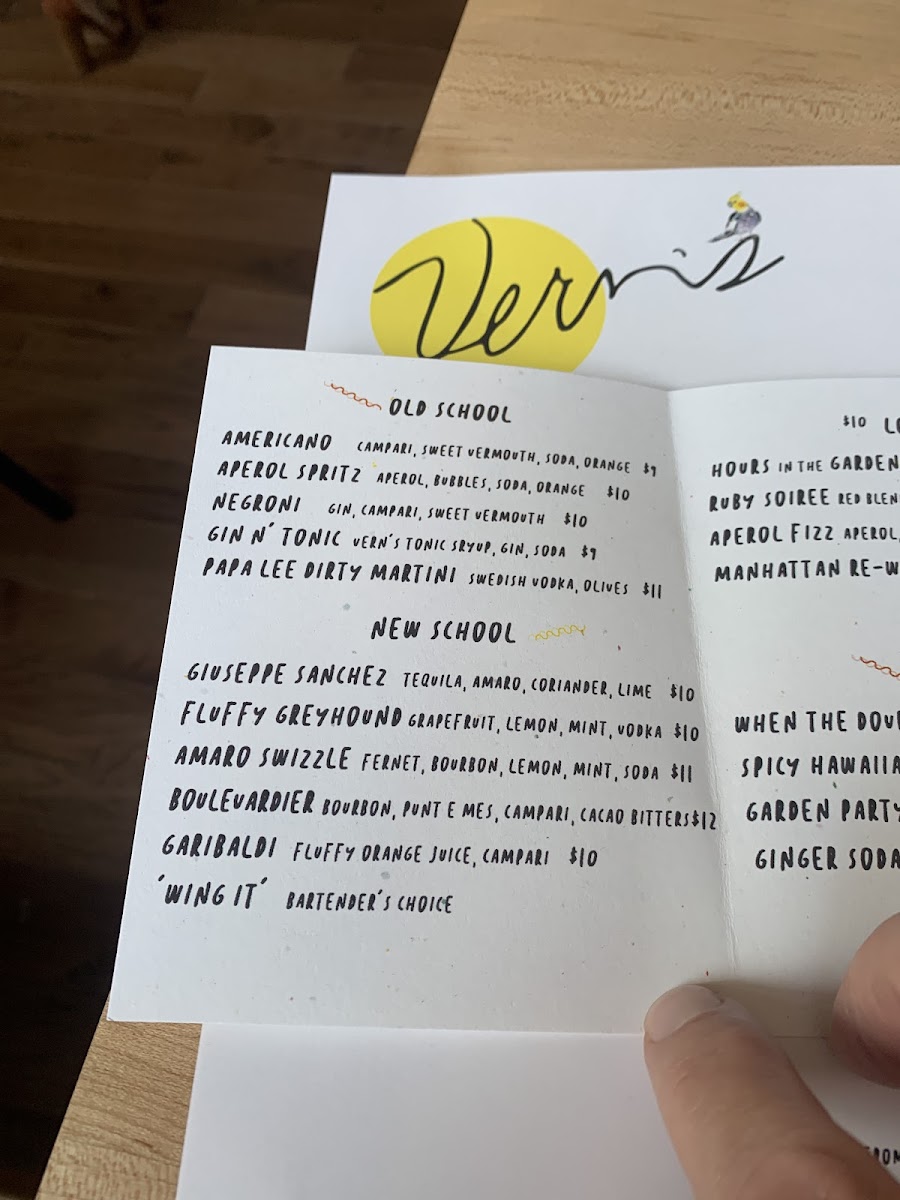 Vern's
OLD SCHOOL
AMERICANO CAMPARI, SWEET VERMOUTH, SODA, ORANGE $9
APEROL SPRITZ APEROL, BUBBLES, SODA, ORANGE $10
NEGRONI GIN, CAMPARI, SWEET VERMOUTH $10
GIN N' TONIC VERN'S TONIC SRYUP, GIN, SODA $9
PAPA LEE DIRTY MARTINI SWEDISH VODKA, OLIVES $11
NEW SCHOOL
GIUSEPPE SANCHEZ TEQUILA, AMARO, CORIANDER, LIME $10
FLUFFY GREYHOUND GRAPEFRUIT, LEMON, MINT, VODKA $10
AMARO SWIZZLE FERNET, BOURBON, LEMON, MINT, SODA $11
BOULEVARDIER BOURBON, PUNT E MES, CAMPARI, CACAO BITTERS $12
GARIBALDI FLUFFY ORANGE JUICE, CAMPARI $10
'WING IT' BARTENDER'S CHOICE
$10
HOURS IN THE GARDEN
RUBY SOIREE RED
APEROL FIZZ APEROL,
MANHATTAN
WHEN THE
SPICY
GARDEN PARTY
GINGER SODA